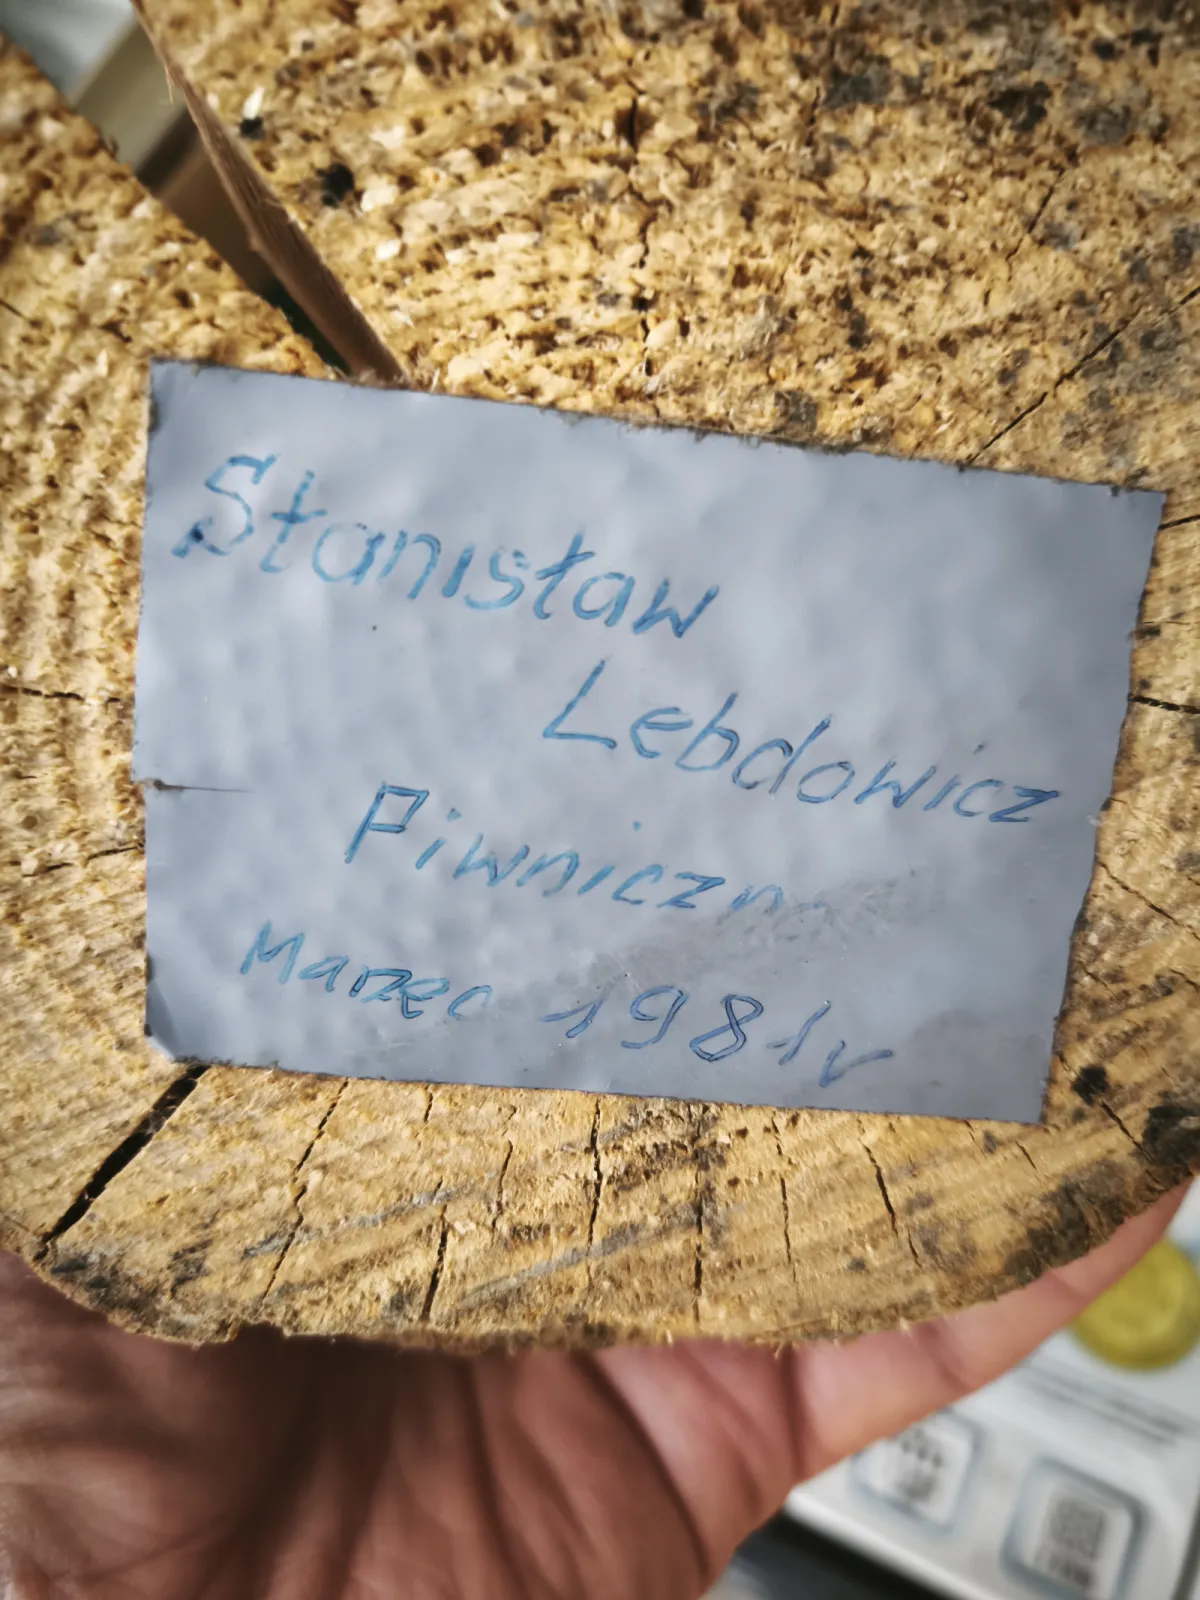 Stanisław
Lebdowicz
Piwniczn
Marzec 1981r